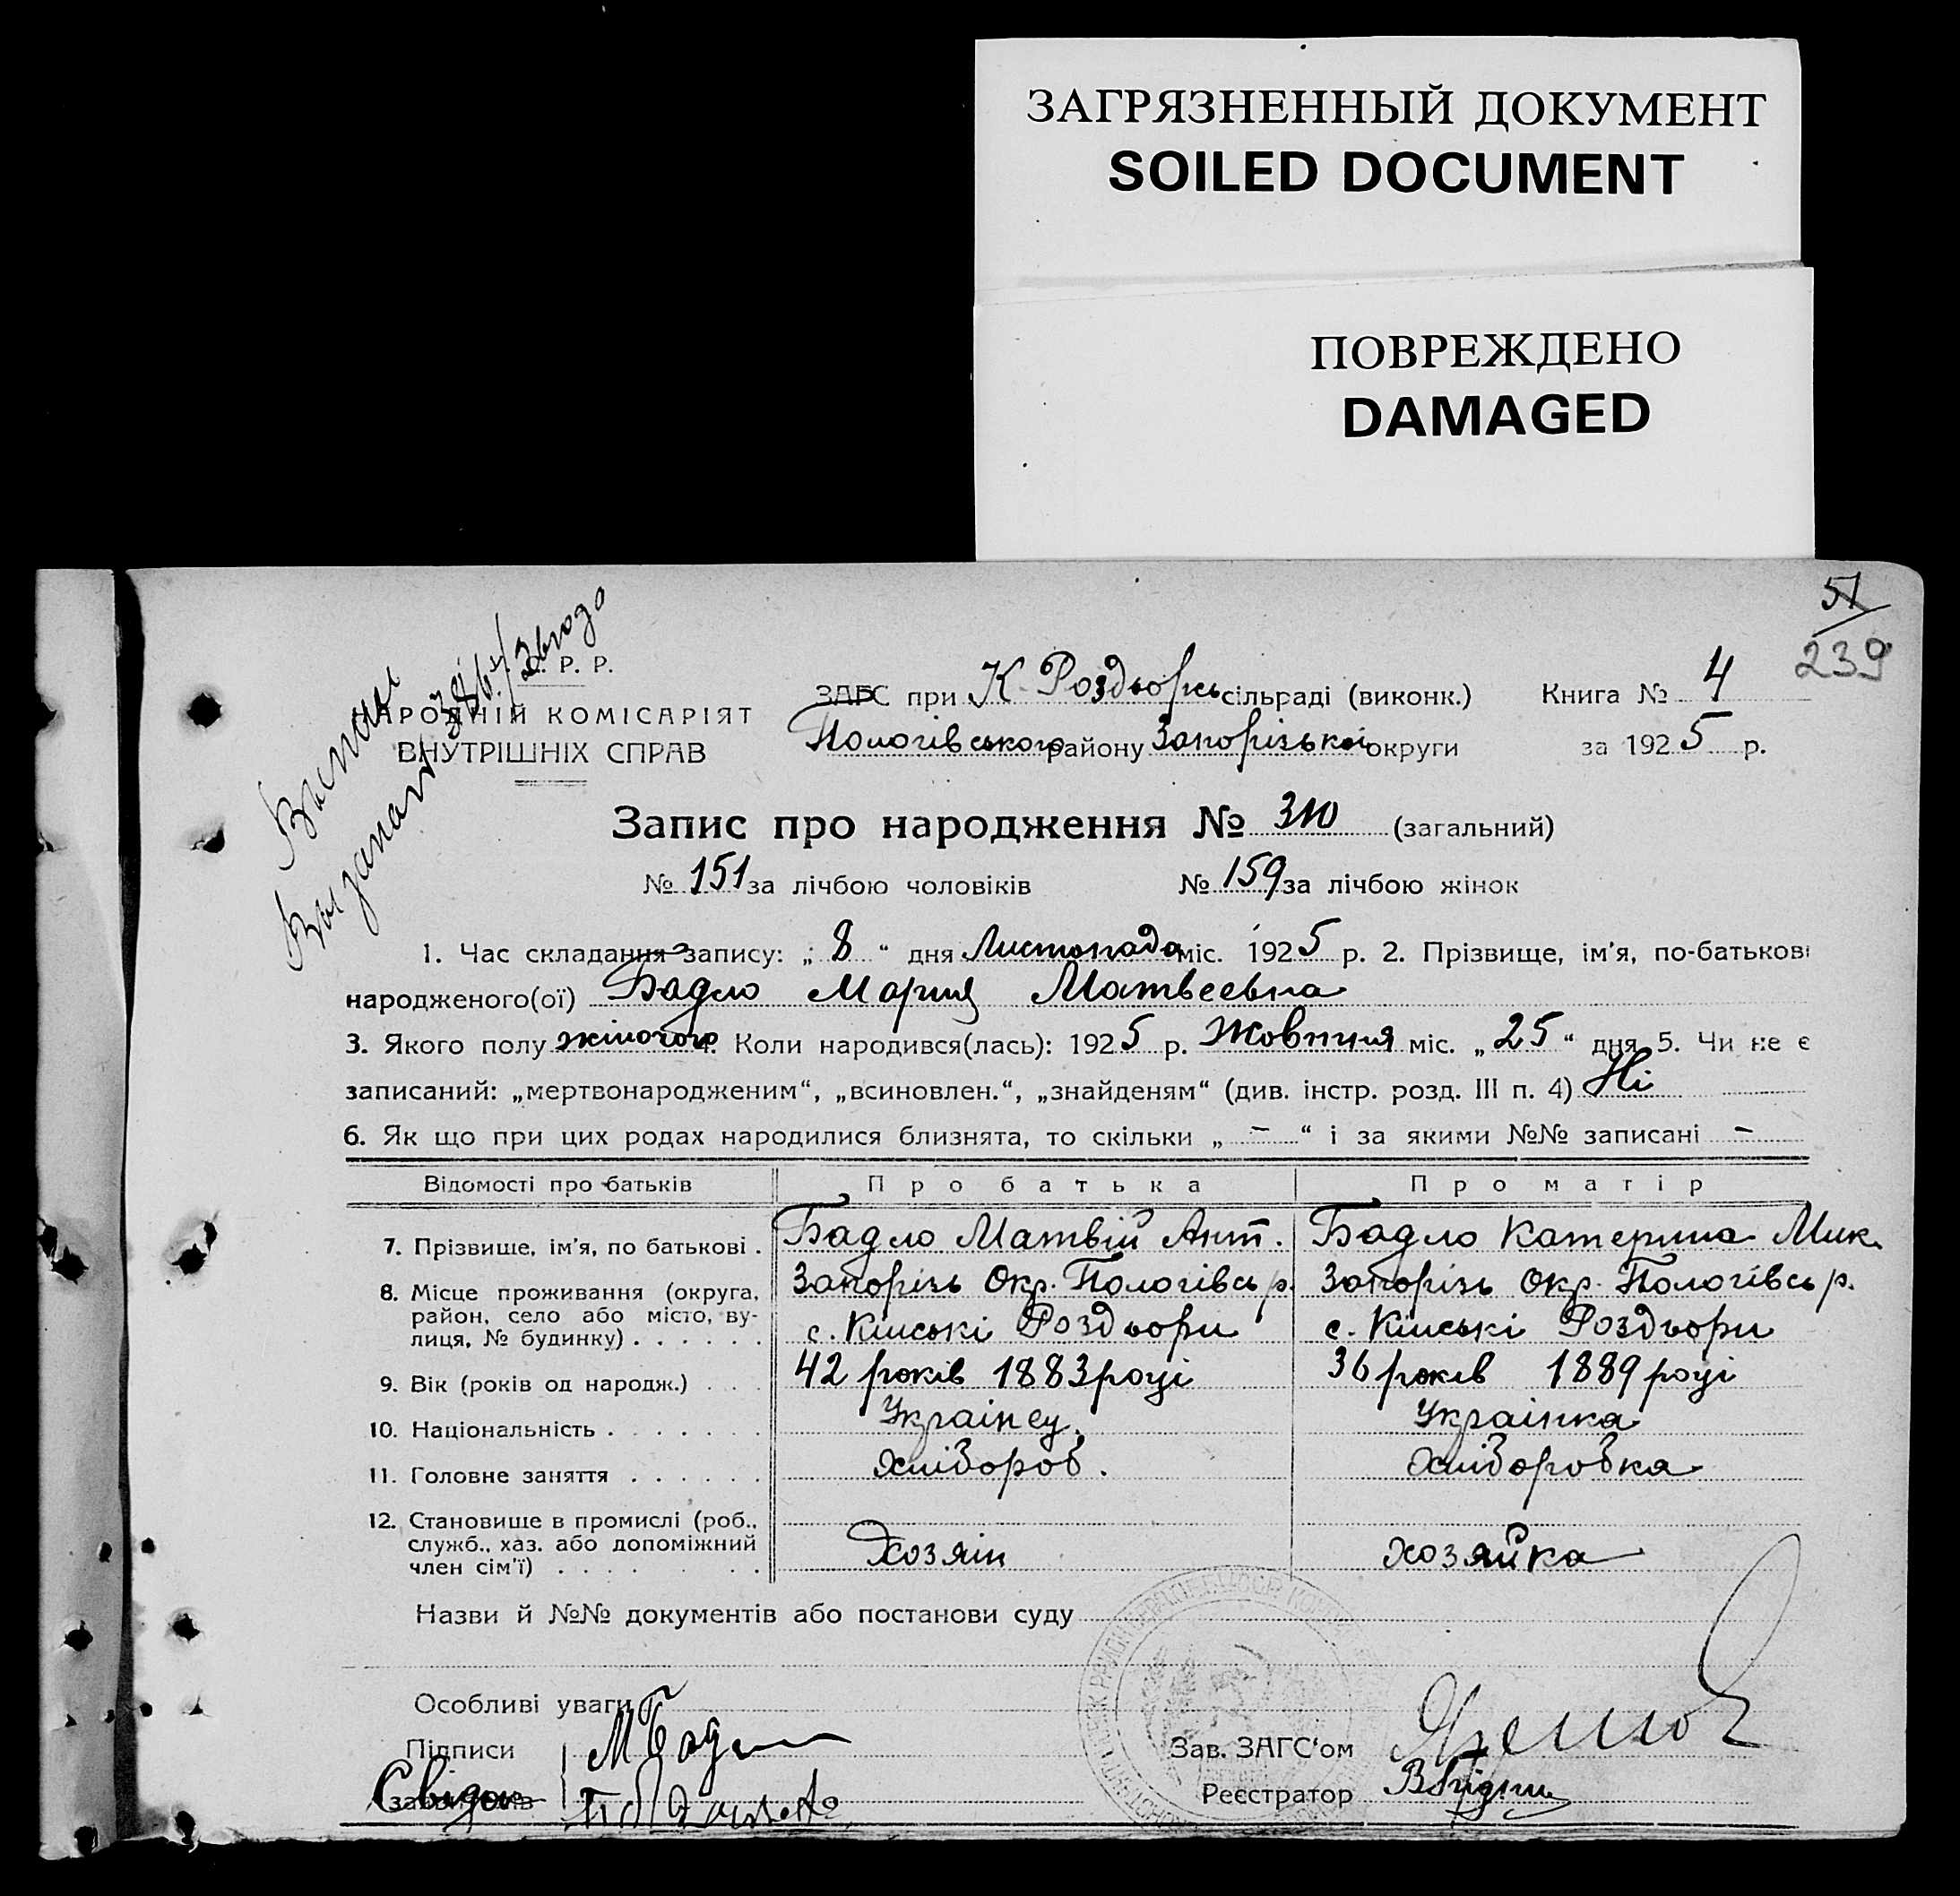 ЗАГРЯЗНЕННЫЙ ДОКУМЕНТ
SOILED DOCUMENT
ПОВРЕЖДЕНО
DAMAGED
51
239
Р. Р.
НАРОДНІЙ КОМІСАРІЯТ
ВНУТРІШНІХ СПРАВ
ЗАГС при К. Роздорсь сільраді (виконк.) Книга № 4
Пологівського району Запорізької округи за 1925 р.
Запис про народження № 310 (загальний)
№ 151 за лічбою чоловіків № 159 за лічбою жінок
1. Час складання запису: „ 8 “ дня Листопада міс. 1925 р. 2. Прізвище, ім’я, по-батькові
народженого(ої) Бадло Мария Матвеевна
3. Якого полу жіночого 4. Коли народився(лась): 1925 р. Жовтня міс. „ 25 “ дня 5. Чи не є
записаний: „мертвонародженим“, „всиновлен.“, „знайденям“ (див. інстр. розд. III п. 4) Ні
6. Як що при цих родах народилися близнята, то скільки „ – “ і за якими №№ записані –
Відомості про батьків Про батька Про матір
7. Прізвище, ім’я, по батькові . Бадло Матвій Ант. Бадло Катерина Мик.
8. Місце проживання (округа, район, село або місто, вулиця, № будинку) Запорізь Окр. Пологівсь р. Запорізь Окр. Пологівсь р.
с. Кінські Роздори с. Кінські Роздори
9. Вік (років од народж.) 42 років 1883 році 36 років 1889 році
10. Національність Українец. Українка
11. Головне заняття Хлібороб. Хліборобка
12. Становище в промислі (роб., служб., хаз. або допоміжний член сім’ї) Хозяїн хозяйка
Назви й №№ документів або постанови суду
Особливі уваги
Підписи М Бадло
Свідок
Зав. ЗАГС‘ом
Реєстратор